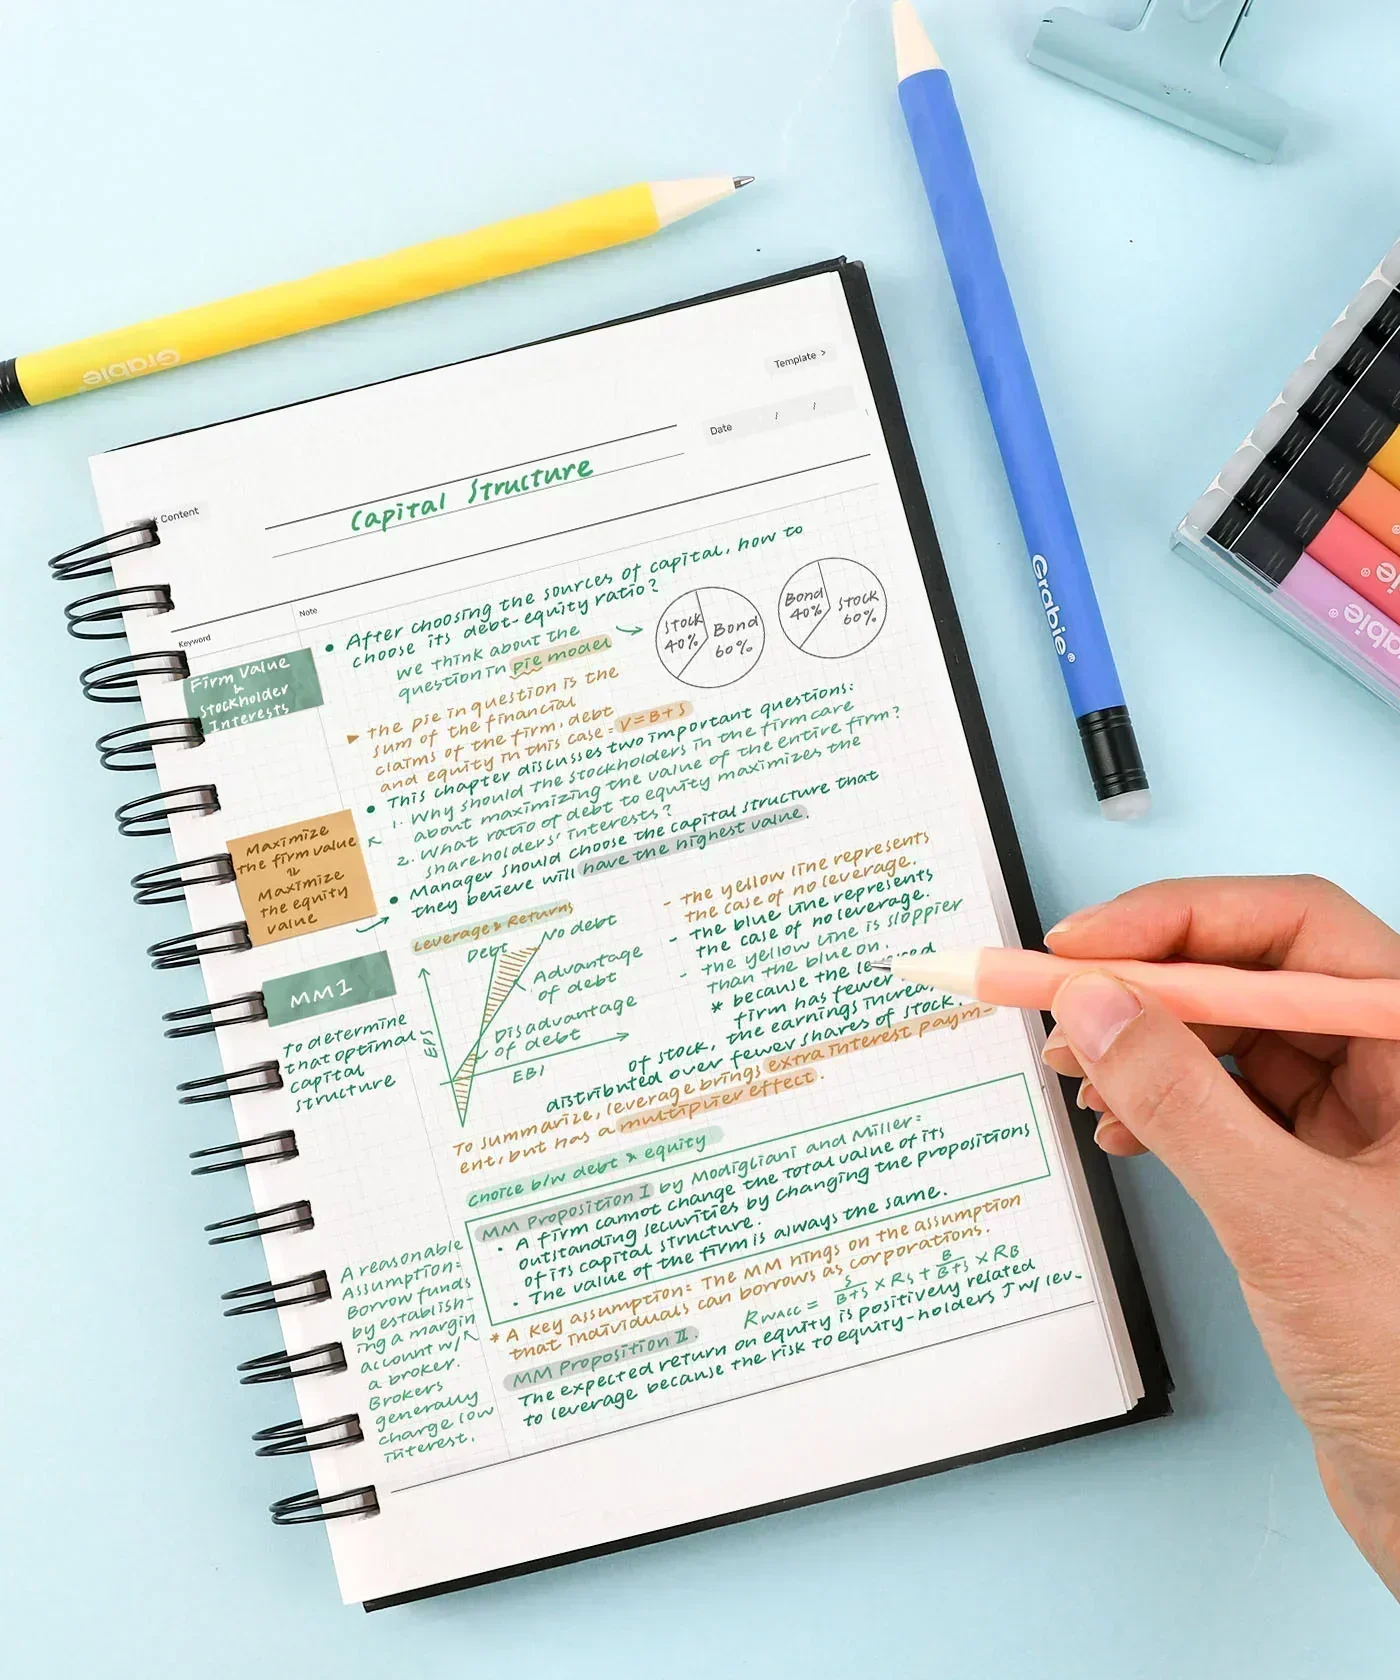 Grabie
Grabie®
Template >
Date / /
Content
Capital Structure
Keyword
Note
Firm Value
&
Stockholder
Interests
• After choosing the sources of capital, how to
choose its debt-equity ratio?
we think about the
question in pie model
Stock
40%
Bond
60%
Bond
40%
Stock
60%
▶ the pie in question is the
sum of the financial
claims of the firm, debt
and equity in this case = V = B + S
• This chapter discusses two important questions:
1. Why should the stockholders in the firm care
about maximizing the value of the entire firm?
2. What ratio of debt to equity maximizes the
shareholders' interests?
• Manager should choose the capital structure that
they believe will have the highest value.
Maximize
the firm value
Maximize
the equity
value
Leverage & Returns
Debt
No debt
Advantage
of debt
Disadvantage
of debt
EPS
EBI
- the yellow line represents
the case of no leverage.
- the blue line represents
the case of no leverage.
- the yellow line is sloppier
than the blue on.
* because the
firm has fewer
of stock, the earnings
distributed over fewer shares of stock.
To summarize, leverage brings extra interest paym-
ent, but has a multiplier effect.
MM1
To determine
that optimal
capital
structure
choice b/w debt & equity
MM Proposition I by Modigliani and Miller:
• A firm cannot change the total value of its
outstanding securities by changing the propositions
of its capital structure.
• The value of the firm is always the same.
* A key assumption: The MM hings on the assumption
that individuals can borrows as corporations.
A reasonable
Assumption:
Borrow funds
by establish-
ing a margin
account w/
a broker.
Brokers
generally
charge low
interest.
MM Proposition II.
R WACC = S/B+S × Rs + B/B+S × RB
The expected return on equity is positively related
to leverage because the risk to equity-holders ↑ w/ lev-
Grabie®